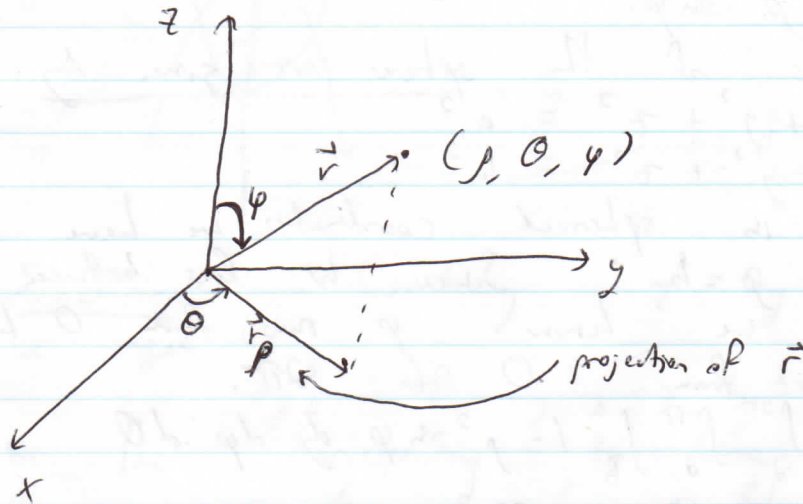 z
r⃗
(ρ, θ, φ)
φ
y
θ
r⃗ₚ
projection of r⃗
x